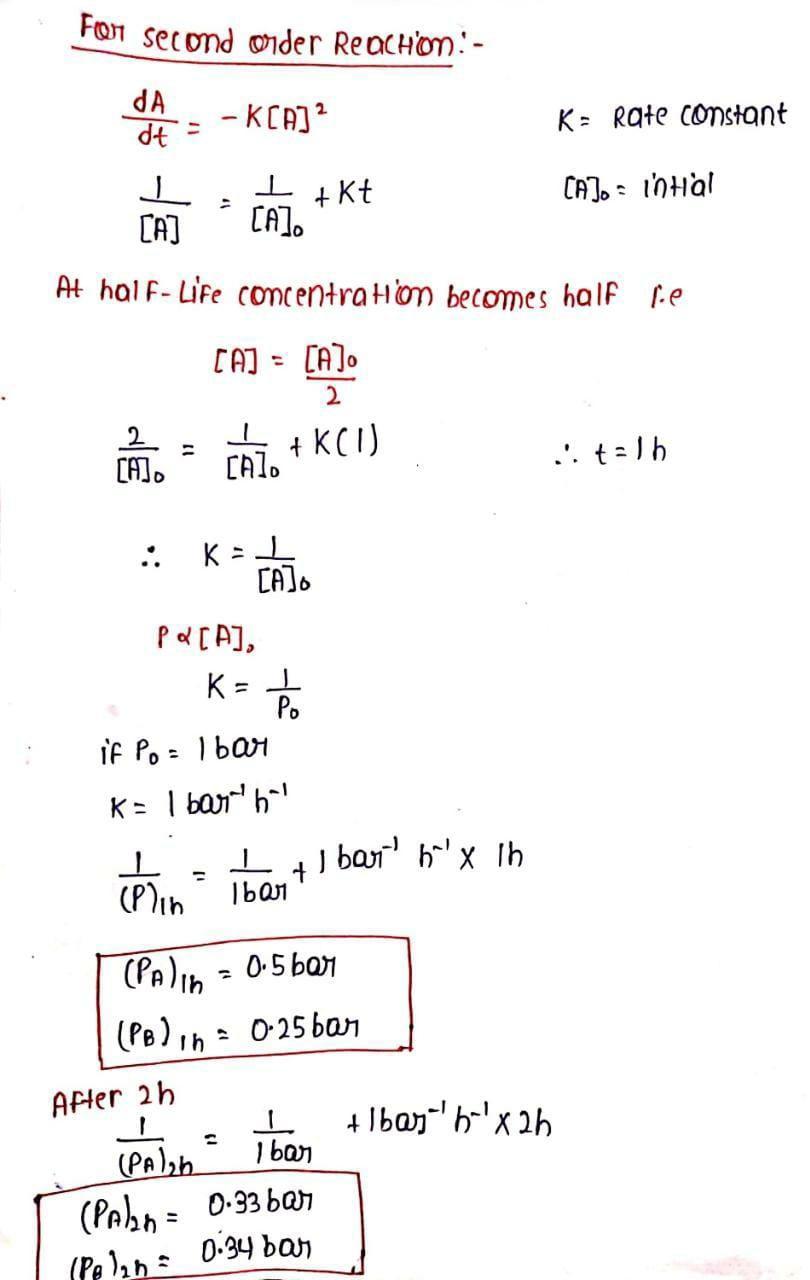 For second order Reaction:-
dA/dt = - K[A]² K = Rate constant
1/[A] = 1/[A]₀ + Kt [A]₀ = intial
At half-Life concentration becomes half i.e
[A] = [A]₀/2
2/[A]₀ = 1/[A]₀ + K(1) ∴ t = 1h
∴ K = 1/[A]₀
P α [A],
K = 1/P₀
if P₀ = 1 bar
K = 1 bar⁻¹ h⁻¹
1/(P)1h = 1/1bar + 1 bar⁻¹ h⁻¹ x 1h
(PA)1h = 0.5 bar
(PB)1h = 0.25 bar
After 2h
1/(PA)2h = 1/1 bar + 1bar⁻¹ h⁻¹ x 2h
(PA)2h = 0.33 bar
(PB)2h = 0.34 bar